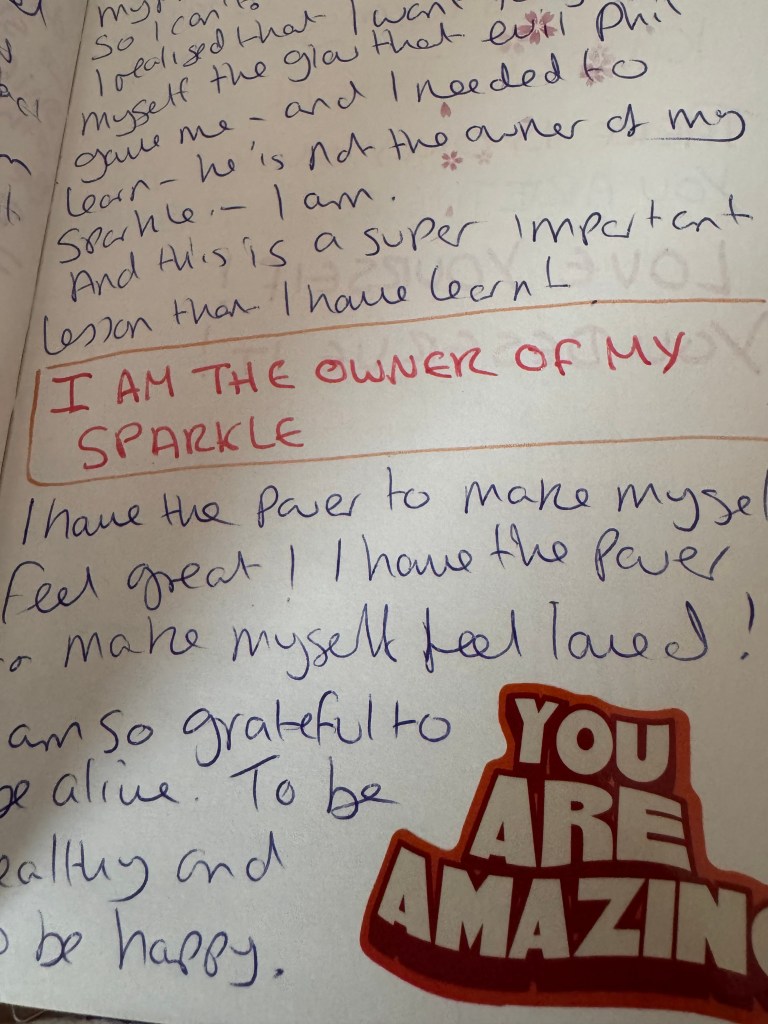 my
so I can't
I realised that I want
myself the glow that evil Phil
gave me - and I needed to
learn - he is not the owner of my
sparkle. - I am.
And this is a super important
lesson that I have learnt.
I AM THE OWNER OF MY
SPARKLE
I have the power to make mysel
feel great! I have the power
to make myself feel loved!
am so grateful to
be alive. To be
ealthy and
o be happy.
YOU
ARE
AMAZIN